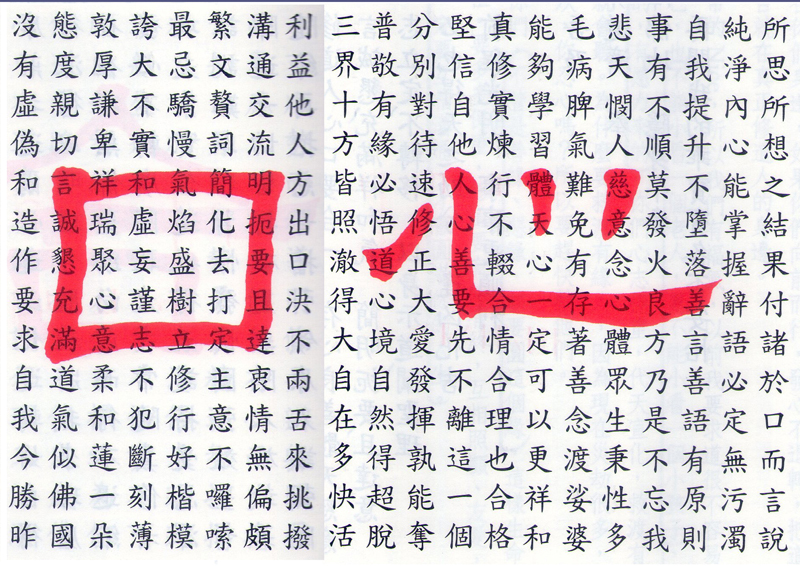 所思所想之結果付諸於口而言說
純淨內心能掌握辭語必定無污濁
自我提升不墮落善言善語有原則
事有不順莫發火良方乃是不忘我
悲天憫人慈意念心體眾生秉性多
毛病脾氣難免有存著善念渡娑婆
能夠學習體天心一定可以更祥和
真修實煉行不輟合情合理也合格
堅信自他人心善要先不離這一個
分別對待速修正大愛發揮孰能奪
普敬有緣必悟道心境自然得超脫
三界十方皆照澈得大自在多快活
利益他人方出口決不兩舌來挑撥
溝通交流明扼要且達衷情無偏頗
繁文贅詞簡化去打定主意不囉嗦
最忌驕慢氣焰盛樹立修行好楷模
誇大不實和虛妄謹志不犯斷刻薄
敦厚謙卑祥瑞聚心意柔和蓮一朵
態度親切言誠懇充滿道氣似佛國
沒有虛偽和造作要求自我今勝昨
心口